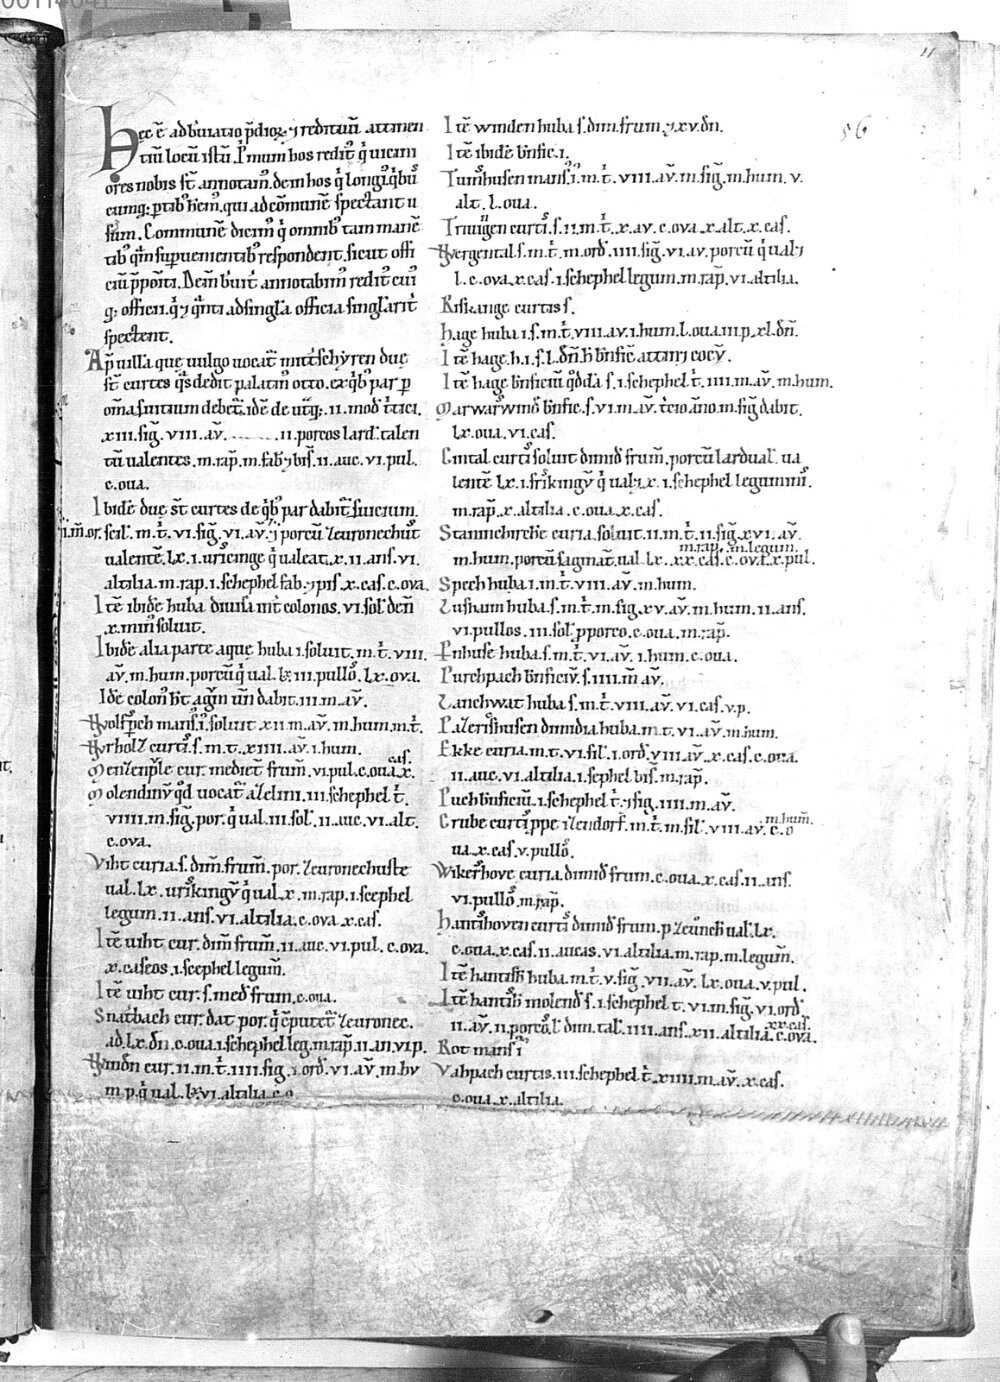 11
56
Hec ē adbreuiatio p̄dioꝝ ⁊ redituū attinen
tiū locū istū. P̓mum hos redit̓ q̓ uicini
ores nobis st̄ annotam̓. dem hos q̓ longi. q̓bu᷒
cumq; partib᷒
sum. Commune dicim᷒ q̓ omnib᷒ tam manē
tib᷒ q̓m supuenientib᷒ respondent. sicut offi
ciū p̄positi. Dem breuit̓ annotabim᷒ redit᷒ cui᷒
q; officii. q̓ ⁊ q̓nti ad singl̓a officia singlarit̓
spectent.
Ap̄ uilla que uulgo uocat̓ mittschyren due
st̄ curtes q̓s dedit palatin᷒ otto. ex q̓b᷒ par p
xiii. sig̓. viii. av̄. ii. porcos lard᷒ talen
tū ualentes. m. rap̄. m. fab᷒ ⁊ bis̄. ii. auc. vi. pul.
c. oua.
Ibidē due st̄ curtes de q̓b᷒ par dabit̓ seruicium.
scil̓. m. t̓. vi. sig̓. vi. av̄. ⁊ i porcū zeuronechust̓
ualentē. lx. i. urscinge q̓ ualeat. x. ii. ans. vi.
altilia. m. rap. i. schephel fab. ⁊ pis̓. x. cas. c. ova.
Itē ibidē huba diuisa int̓ colonos. vi. sol̓. deñ
x. min᷒ soluit.
Ibidē alia parte aque huba i. soluit. m. t̓. viii.
av̄. m. hum. porcū q̓ ual. lx. iii. pullo᷒. lx. ova.
Idē colon᷒ ht̄ agr̄m un̄ dabit. iii. m. av̄.
Wolfp̄ch mans᷒. i. soluit. xii. m. av̄. m. hum. m. t̓.
Hyrholz curti᷒. s. m. t̓. xiiii. av̄. i. hum.
cas.
Menzenp̄le cur. mediet̄ frum̄. vi. pul. c. oua. x.
Molendinv̄ q̓d uocat̓ azelini. iii. schephel t̓.
viiii. m. sig̓. por. q̓ ual. iii. sol̓. ii. auc. vi. alt.
c. ova.
Viht curia. s. dim̄. frum̄. por. zeuronechuste
ual. lx. urskingv̄ q̓ ual. x. m. rap. i. scephel
legum. ii. ans. vi. altilia. c. ova. x. cas.
Itē uiht cur. dim̄ frum̄. ii. auc. vi. pul. c. ova.
x. caseos. i. scephel legum̄.
Itē uiht cur. s. med᷒ frum. c. oua.
Snaťbach cur. dat por. q̓ cputet̓ zeuronec.
ad. lx. dn̄. c. oua. i. schephel leg. m. rap̄. ii. an. vi. p.
Windn̄ cur. ii. m. t̓. iiii. sig. i. ord᷒. vi. av̄. m. hv
m. p. q̓ ual. lx. vi. altilia. c. o.
Itē winden huba s. dim. frum. ⁊ xv. dn̄.
Itē ibidē bn̄fic. i.
Turnhusen mans᷒. i. m. t̓. viii. av̄. m. sig̓. m. hum. v.
alt. l. oua.
curti᷒. s. ii. m. t̓. x. av. c. ova. x. alt. x. cas.
Wergental s. m. t̓. m. ord᷒. iiii. sig̓. vi. av. porcū q̓ ual.
l. c. ova. x. cas. i. schephel legum. m. rap̄. vi. altilia.
Riskange curtis s.
Hage huba i. s. m. t̓. viii. av. i. hum. l. oua. iii. p. xl. dn̄.
Itē hage. h. i. s. l. dn̄.
Itē hage bn̄ficiū q̓dd̓a s. i. schephel t̓. iiii. m. av̄. m. hum.
bn̄fic. s. vi. m. av̄. t̓cio āno. m. sig̓ dabit.
lx. oua. vi. cas.
curti᷒ soluit dimid᷒ frum̄. porcū lardual̓. ua
lentē. lx. i. friskingv̄ q̓ ual. x. i. schephel legumini᷒.
m. rap̄. x. altilia. c. oua. x. cas.
Stainchirchē curia. soluit. ii. m. t̓. ii. sig̓. xvi. av̄.
m. rap̄. m. legum.
m. hum. porcū sagmat̄. ual. lx. xx. cas. c. ova. x. pul.
Spech huba i. m. t̓. viii. av̄. m. hum.
Zushaim huba. s. m. t̓. m. sig̓. xv. av̄. m. hum. ii. ans.
vi. pullos. iii. sol̓. p porco. c. oua. m. rap̄.
Pnhuse huba. s. m. t̓. vi. av̄. i. hum. c. oua.
Purchpach bn̄ficiv̄. s. iiii. m̄ av.
Lanchwat huba s. m. t̓. viii. av̄. vi. cas. v. p.
Pazerishusen dimidia huba. m. t̓. vi. av̄. m. hum.
Ekke curia. m. t̓. vi. sil̓. i. ord᷒. viii. av̄. x. cas. c. ova.
ii. auc. vi. altilia. i. sephel bis̄. m. rap̄.
Puch bn̄ficiū. i. schephel t̓. ⁊ sig̓. iiii. m. av̄.
m. hum̄.
Grube curti᷒ ppe izendorf̄. m. t̓. m. sil̓. viii. av̄. c. o
ua. x. cas. v. pullo᷒.
Wikerhove curia dimid᷒ frum. c. oua. x. cas. ii. ans.
vi. pullo᷒. m. rap̄.
Hantihoven curti᷒ dimid᷒ frum. p zeūnch ual. lx.
c. oua. x. cas. ii. aucas. vi. altilia. m. rap. m. legum̄.
Itē hantish̄ huba. m. t̓. v. sig̓. vii. av̄. lx. oua. v. pul.
Itē hantih̄ molend᷒ s. i. schephel t. vi. m. sig̓. vi. ord᷒
xx. cas.
ii. av̄. ii. porco᷒. l̓ dim. tal̓. iiii. ans. xii. altilia. c. ova.
Rot mans᷒ i᷒
Vahpach curtis. iii. schephel. t̓. xiiii. m. av̄. x. cas.
c. oua. x. altilia.